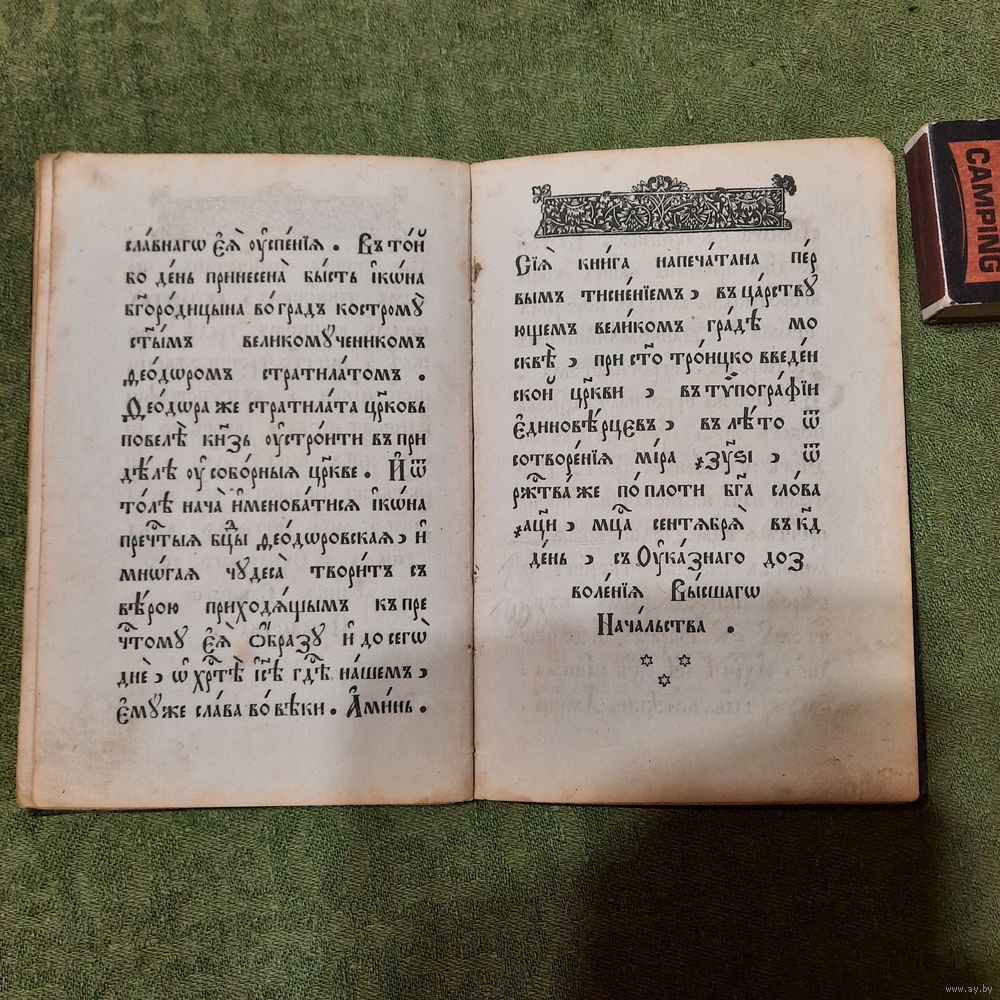 сла́внагѡ є҆ѧ̀ ᲂу҆спе́нїѧ . Въ то́й
бо де́нь принесена̀ бы́сть і҆кѡ́на
бг҃оро́дицына во́ градъ костромꙋ̀
ст҃ы́мъ великомꙋ́ченикомъ
ѳео́дѡромъ стратила́томъ .
Ѳео́дѡра же стратила́та цр҃ковь
повелѣ̀ кн҃зь ᲂу҆стро́ити въ при
дѣ́лѣ ᲂу҆ собо́рныѧ цр҃кве . И҆ ѿ
то́лѣ нача̀ и҆менова́тисѧ і҆кѡ́на
пречⷭ҇тыѧ бцⷣы ѳео́дѡровскаѧ , и҆
мнѡ́гаѧ чꙋдеса̀ твори́тъ съ
вѣ́рою приходѧ́щымъ къ пре
чⷭ҇томꙋ є҆ѧ̀ Ѻ҆́бразꙋ и҆ до сегѡ̀
днѐ , ѡ҆ хрⷭ҇тѣ̀ і҆с҃ѣ гдⷭ҇ѣ на́шемъ ,
є҆мꙋ́же сла́ва во́ вѣки . А҆ми́нь .
Сїѧ̀ кни́га напеча́тана пе́р
вымъ тисне́нїемъ , въ ца́рствꙋ
ющемъ вели́комъ гра́дѣ мо
сквѣ̀ , при ст҃о тро́ицко введе́н
ской цр҃кви , въ тѷпогра́фїи
є҆диновѣ́рцєвъ , въ лѣ́то ѿ
сотворе́нїѧ мі́ра ҂зꙋ҃ѕі , ѿ
ржⷭ҇тва́ же по́ плоти бг҃а сло́ва
҂ац҃и , мцⷭ҇а сентѧбрѧ̀ въ кд҃
де́нь , съ Оу҆ка́знаго доз
воле́нїѧ Вы́сшагѡ
Нача́льства .
CAMPING
www.ay.by